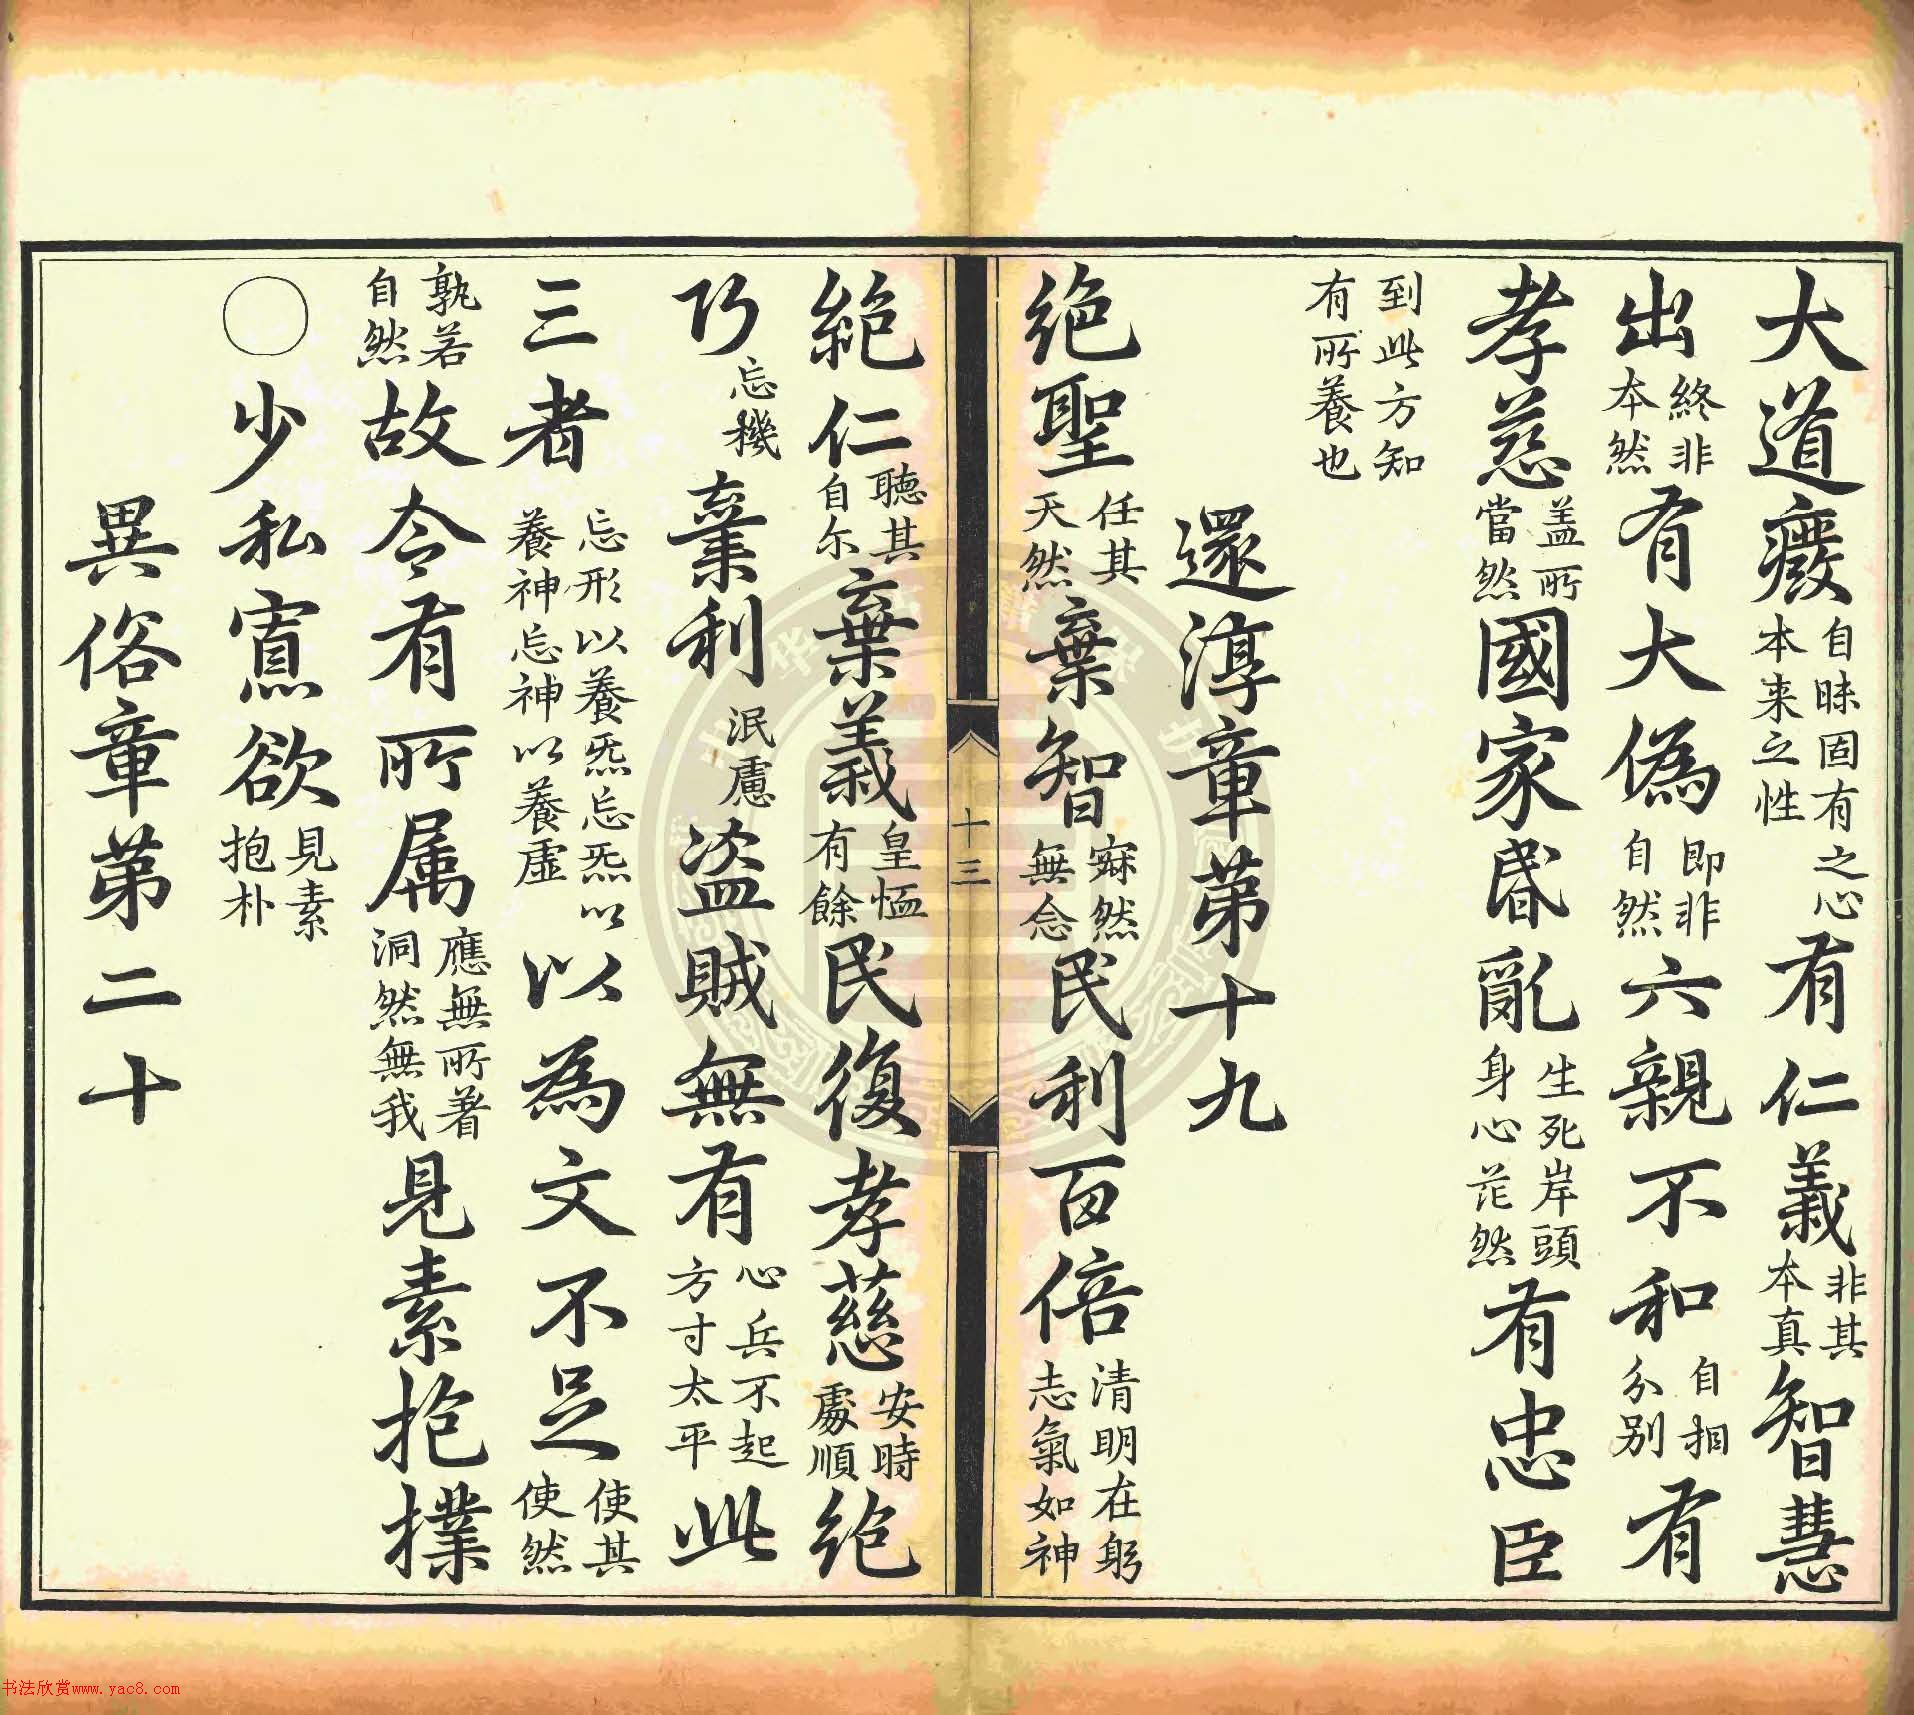 大道癈自昧固有之心本来之性有仁義非其本真智慧
出終非本然有大偽即非自然六親不和自相分别有
孝慈盖所當然國家昬亂生死岸頭身心茫然有忠臣
到此方知有所養也
還淳章第十九
絶聖任其天然棄智寂然無念民利百倍清明在躬志氣如神
十三
絶仁聽其自尔棄義皇恤有餘民復孝慈安時處順絶
巧忘機棄利泯慮盗賊無有心兵不起方寸太平此
三者忘形以養炁忘炁以養神忘神以養虚以為文不足使其使然
孰若自然故令有所属應無所著洞然無我見素抱樸
○少私寡欲見素抱朴
異俗章第二十
书法欣赏www.yac8.com